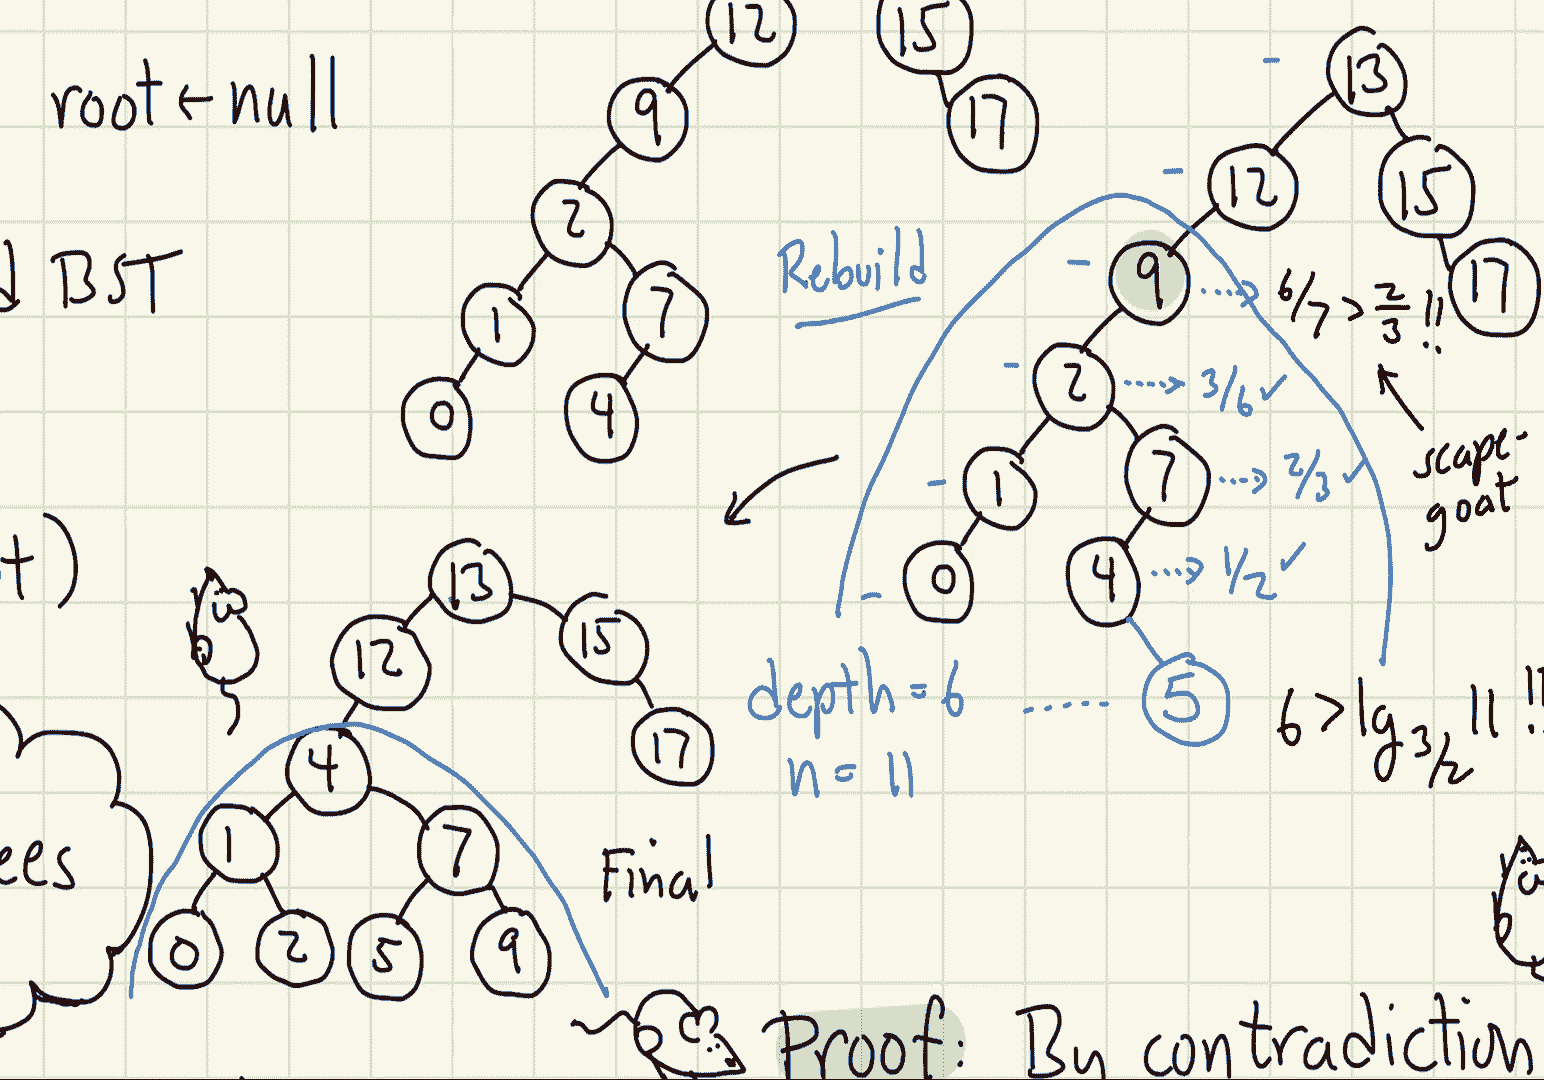 root ← null
BST
t)
ees
12
9
2
1
7
0
4
15
17
13
12
15
9
17
2
1
7
0
4
5
Rebuild
6/7 > 2/3 !!
3/6 ✓
2/3 ✓
1/2 ✓
scape-
goat
depth = 6
n = 11
6 > lg 3/2 11 !!
13
12
15
4
17
1
7
0
2
5
9
Final
Proof: By contradiction